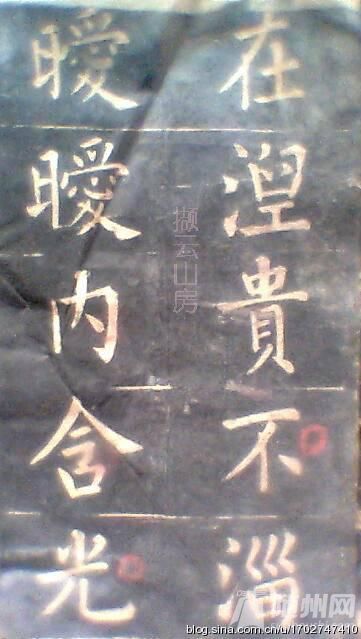 在涅貴不淄
曖曖内含光
撷云山房
blog.sina.com.cn/u/1702747410